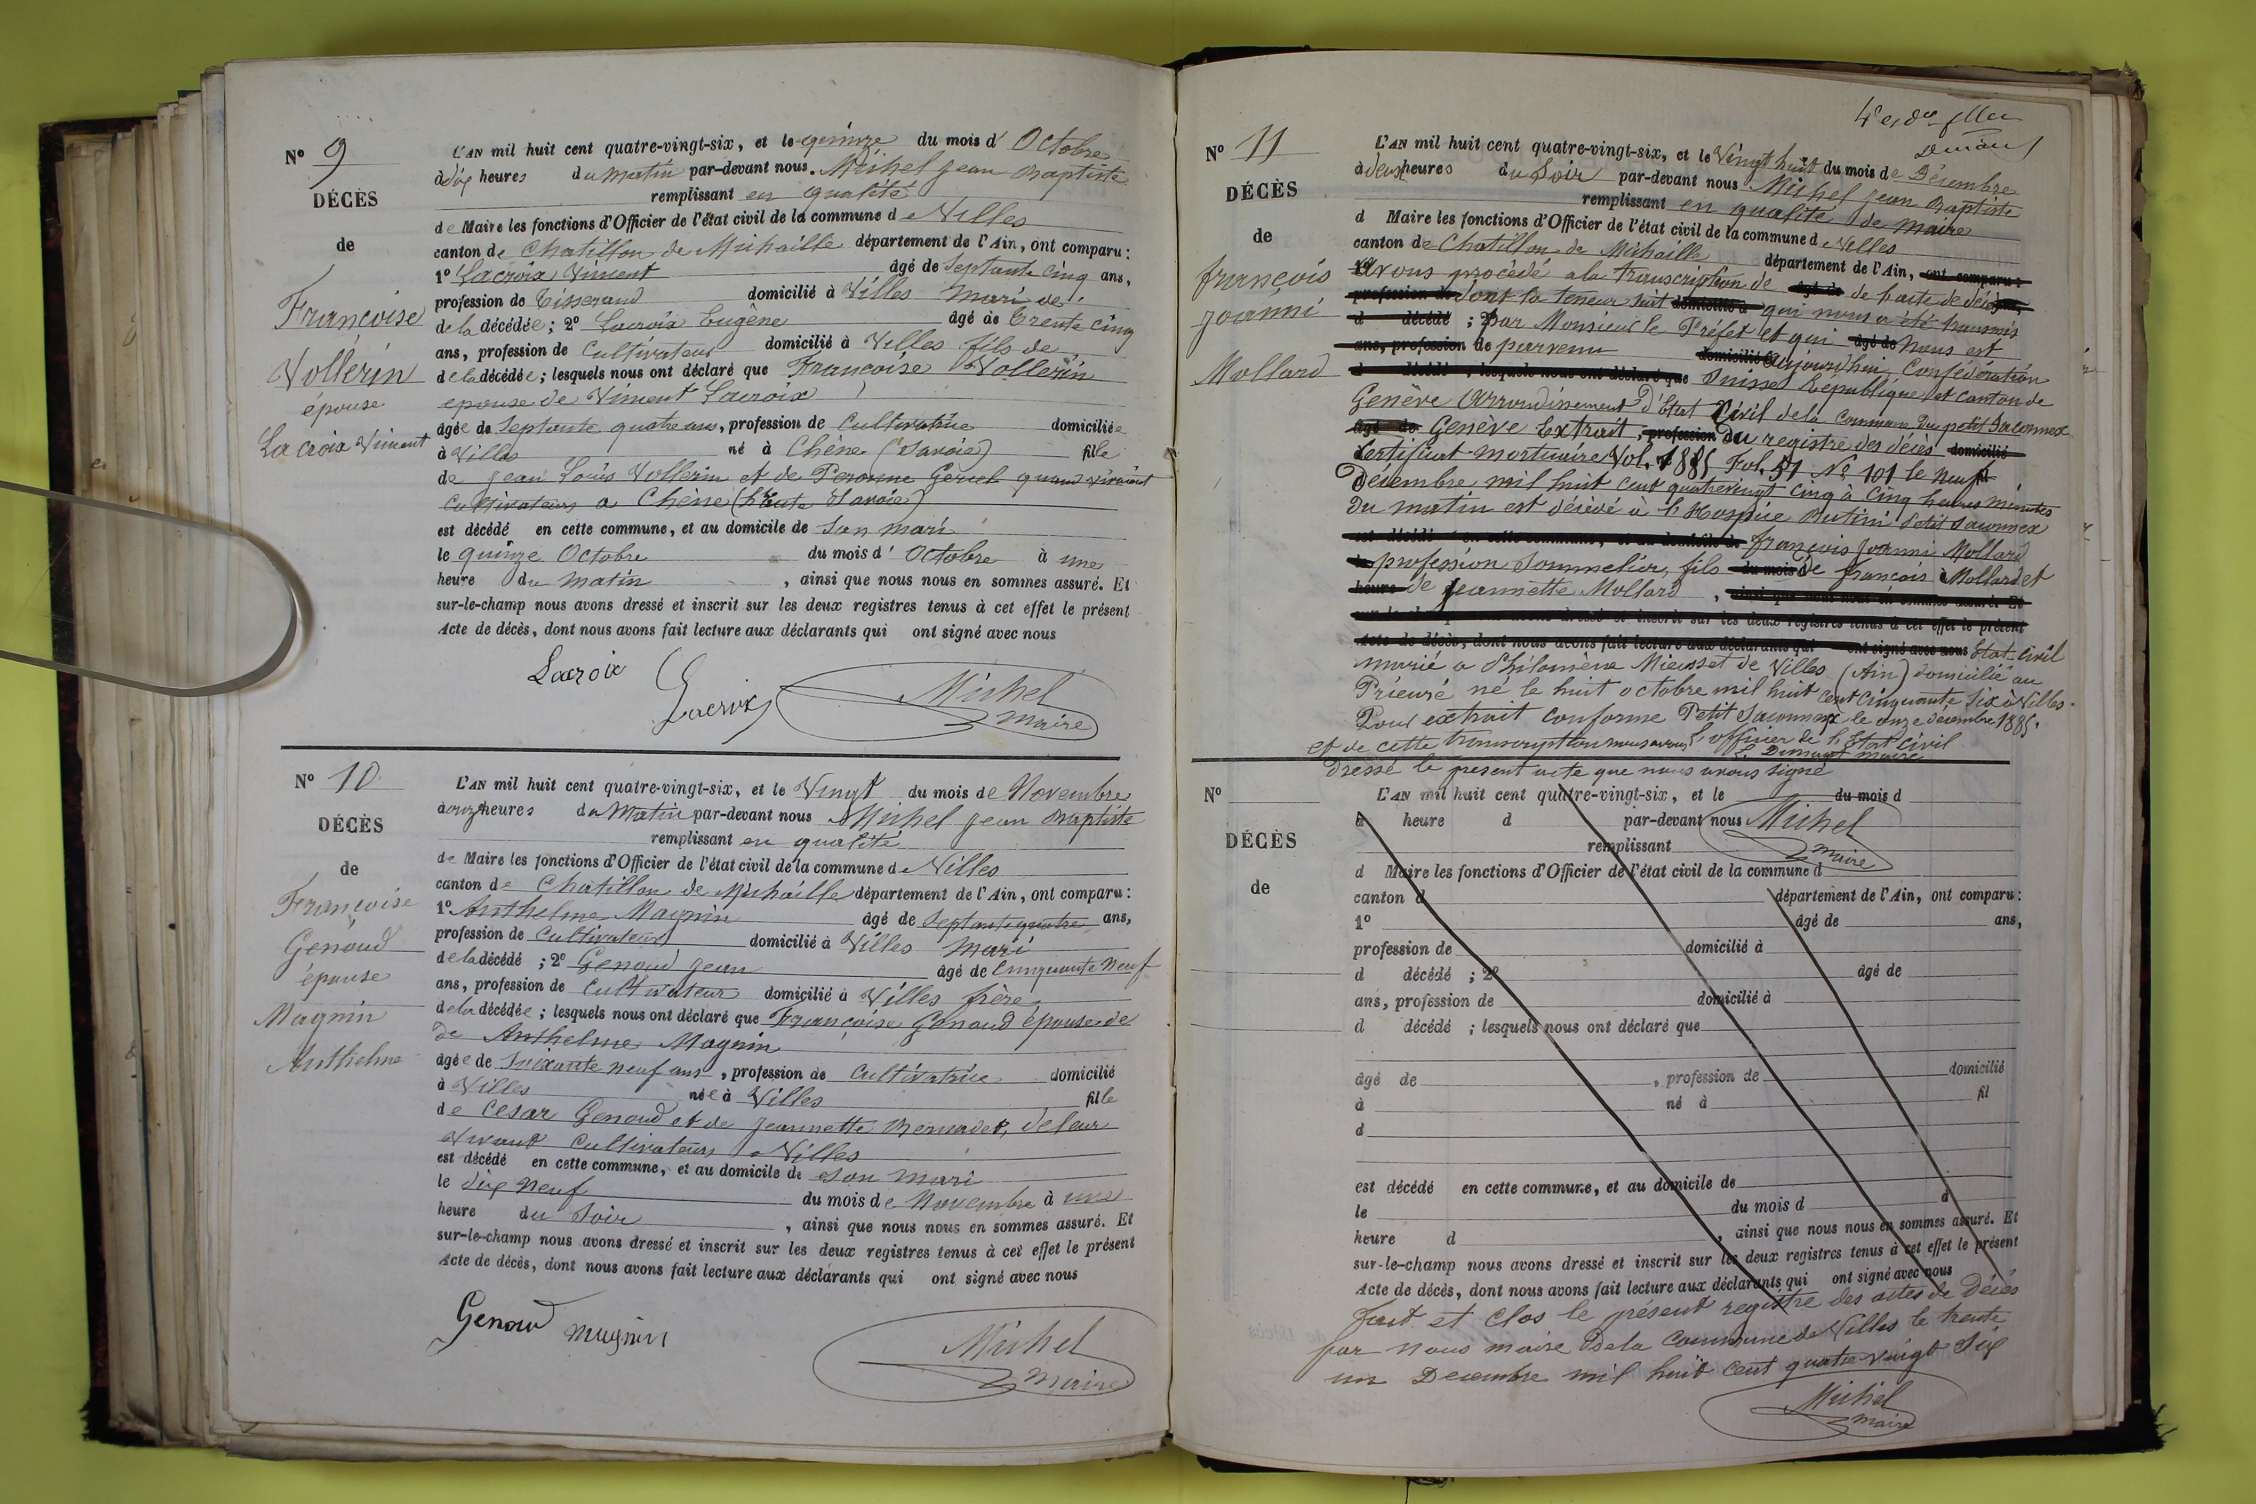 N° 9
DÉCÈS
de
Françoise
Vollerin
épouse
Lacroix Vincent
L'AN mil huit cent quatre-vingt-six, et le quinze du mois d' Octobre
à dix heures du matin par-devant nous Michel Jean Baptiste
remplissant en qualité
de Maire les fonctions d'Officier de l'état civil de la commune de Villes
canton de Chatillon de Michaille département de l'Ain, ont comparu :
1° Lacroix Vincent âgé de septante cinq ans,
profession de Tisserand domicilié à Villes Mari de
de la décédée ; 2° Lacroix Eugène âgé de trente cinq
ans, profession de Cultivateur domicilié à Villes fils de
de la décédée ; lesquels nous ont déclaré que Françoise Vollerin
épouse de Vincent Lacroix
âgée de septante quatre ans, profession de Cultivatrice domiciliée
à Villes né à Chêne (Savoie) fille
de Jean Louis Vollerin et de Peronne quand vivaient
Cultivateurs a Chêne (hte Savoie)
est décédé en cette commune, et au domicile de son mari
le quinze Octobre du mois d' Octobre à une
heure du matin , ainsi que nous nous en sommes assuré. Et
sur-le-champ nous avons dressé et inscrit sur les deux registres tenus à cet effet le présent
Acte de décès, dont nous avons fait lecture aux déclarants qui ont signé avec nous
Lacroix Lacroix Michel
maire
N° 10
DÉCÈS
de
Françoise
Genoud
épouse
Magnin
Anthelme
L'AN mil huit cent quatre-vingt-six, et le Vingt du mois de Novembre
à onze heures du Matin par-devant nous Michel Jean Baptiste
remplissant en qualité
de Maire les fonctions d'Officier de l'état civil de la commune de Villes
canton de Chatillon de Michaille département de l'Ain, ont comparu :
1° Anthelme Magnin âgé de septante quatre ans,
profession de Cultivateur domicilié à Villes Mari
de la décédé ; 2° Genoud Jean âgé de Cinquante neuf
ans, profession de Cultivateur domicilié à Villes frère
de la décédée ; lesquels nous ont déclaré que Françoise Genoud épouse de
de Anthelme Magnin
âgée de soixante neuf ans, profession de Cultivatrice domicilié
à Villes née à Villes fille
de Cesar Genoud et de Jeannette de leur
vivant Cultivateurs a Villes
est décédé en cette commune, et au domicile de son mari
le dix neuf du mois de Novembre à une
heure du Soir , ainsi que nous nous en sommes assuré. Et
sur-le-champ nous avons dressé et inscrit sur les deux registres tenus à cet effet le présent
Acte de décès, dont nous avons fait lecture aux déclarants qui ont signé avec nous
Genoud magnin Michel
maire
N° 11
DÉCÈS
de
françois
joanni
Mollard
L'AN mil huit cent quatre-vingt-six, et le Vingt huit du mois de Décembre
à deux heures du Soir par-devant nous Michel Jean Baptiste
remplissant en qualité de maire
d Maire les fonctions d'Officier de l'état civil de la commune de Villes
canton de Chatillon de Michaille département de l'Ain, ont comparu :
Avons procédé a la transcription de de l'acte de décès
dont la teneur suit qui nous a été transmis
d décédé ; par Monsieur le Préfet et qui nous est
ans, profession de parvenu aujourd'hui, Confédération
Suisse République et canton de
Genève Arrondissement d'Etat Civil de la Commune Du petit Saconnex
Genève Extrait, profession du registre des décès domicilié
Certificat mortuaire Vol. 1885 Fol. 51 N° 101 le neuf
Décembre mil huit cent quatrevingt cinq à cinq heures minutes
du matin est décédé à l'Hospice Butini Petit Saconnex
françois joanni Mollard
profession Sommelier, fils du mois de françois Mollard et
heure de jeannette Mollard ,
Acte de décès, dont nous avons fait lecture aux déclarants qui ont signé avec nous Etat-Civil
marié a Philomène Miesset de Villes (Ain) domicilié au
Prieuré né le huit octobre mil huit cent cinquante six à Villes
Pour extrait conforme Petit Saconnex le onze décembre 1885.
L'officier de l'Etat Civil
et de cette transcription nous avons
dressé le présent acte que nous avons signé
Michel
maire
N°
DÉCÈS
de
L'AN mil huit cent quatre-vingt-six, et le du mois d
à heure d par-devant nous
remplissant
d Maire les fonctions d'Officier de l'état civil de la commune d
canton d département de l'Ain, ont comparu :
1° âgé de ans,
profession de domicilié à
d décédé ; 2° âgé de
ans, profession de domicilié à
d décédé ; lesquels nous ont déclaré que
âgé de , profession de domicilié
à né à fil
d
est décédé en cette commune, et au domicile de
le du mois d à
heure d , ainsi que nous nous en sommes assuré. Et
sur-le-champ nous avons dressé et inscrit sur les deux registres tenus à cet effet le présent
Acte de décès, dont nous avons fait lecture aux déclarants qui ont signé avec nous
fait et clos le présent registre des actes de Décès
par nous maire De la Commune de Villes le trente
un Decembre mil huit cent quatre vingt Six
Michel
maire